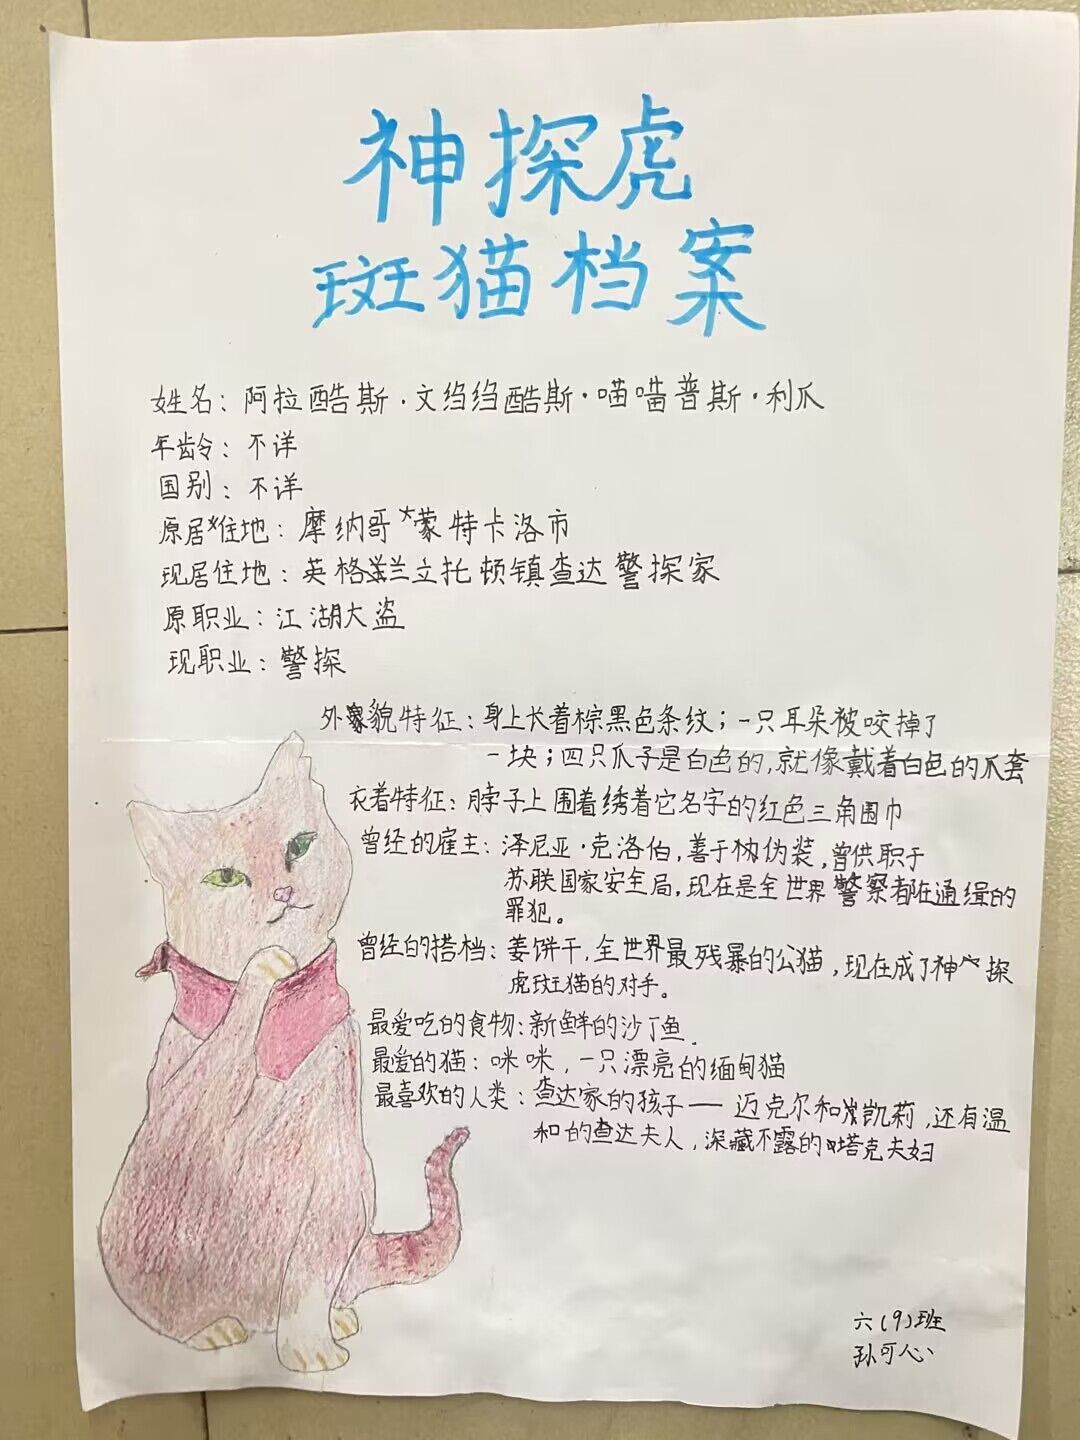 神探虎
斑猫档案
姓名：阿拉酷斯·文绉绉酷斯·喵喵普斯·利爪
年龄：不详
国别：不详
原居住地：摩纳哥蒙特卡洛市
现居住地：英格兰立托顿镇查达警探家
原职业：江湖大盗
现职业：警探
外貌特征：身上长着棕黑色条纹；一只耳朵被咬掉了
一块；四只爪子是白色的，就像戴着白色的爪套
衣着特征：脖子上围着绣着它名字的红色三角围巾
曾经的雇主：泽尼亚·克洛伯，善于伪装，曾供职于
苏联国家安全局，现在是全世界警察都在通缉的
罪犯。
曾经的搭档：姜饼干，全世界最残暴的公猫，现在成了神探
虎斑猫的对手。
最爱吃的食物：新鲜的沙丁鱼.
最爱的猫：咪咪，一只漂亮的缅甸猫
最喜欢的人类：查达家的孩子——迈克尔和凯莉，还有温
和的查达夫人，深藏不露的塔克夫妇
六(9)班
孙可心